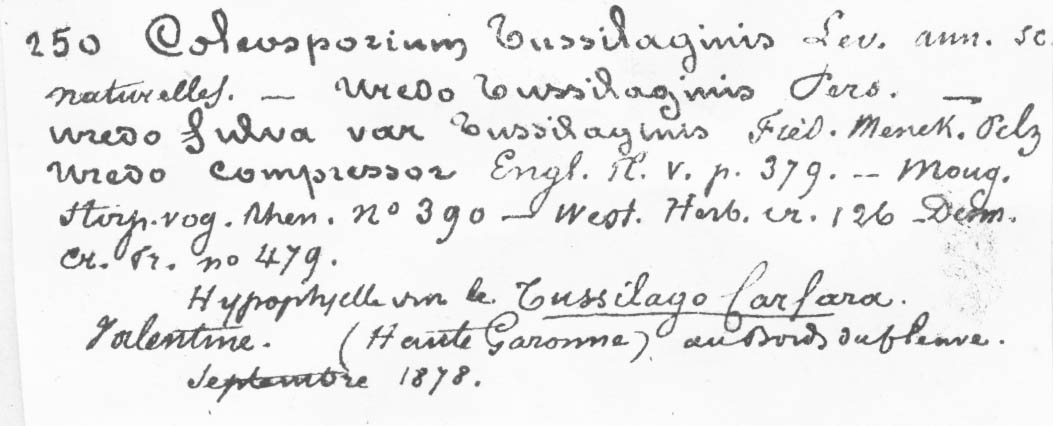 250 Coleosporium Tussilaginis Lev. ann. sc.
naturelles. — Uredo Tussilaginis Pers. —
Uredo fulva var Tussilaginis Menck. Pelz
Uredo compressor Engl. Fl. v. p. 379. — Moug.
stirp. vog. Rhen. no 390 — West. Herb. cr. 126 Desm.
cr. Fr. no 479.
Hypophylle sur le Tussilago farfara.
Valentine. (Haute Garonne) au Bords du fleuve.
Septembre 1878.